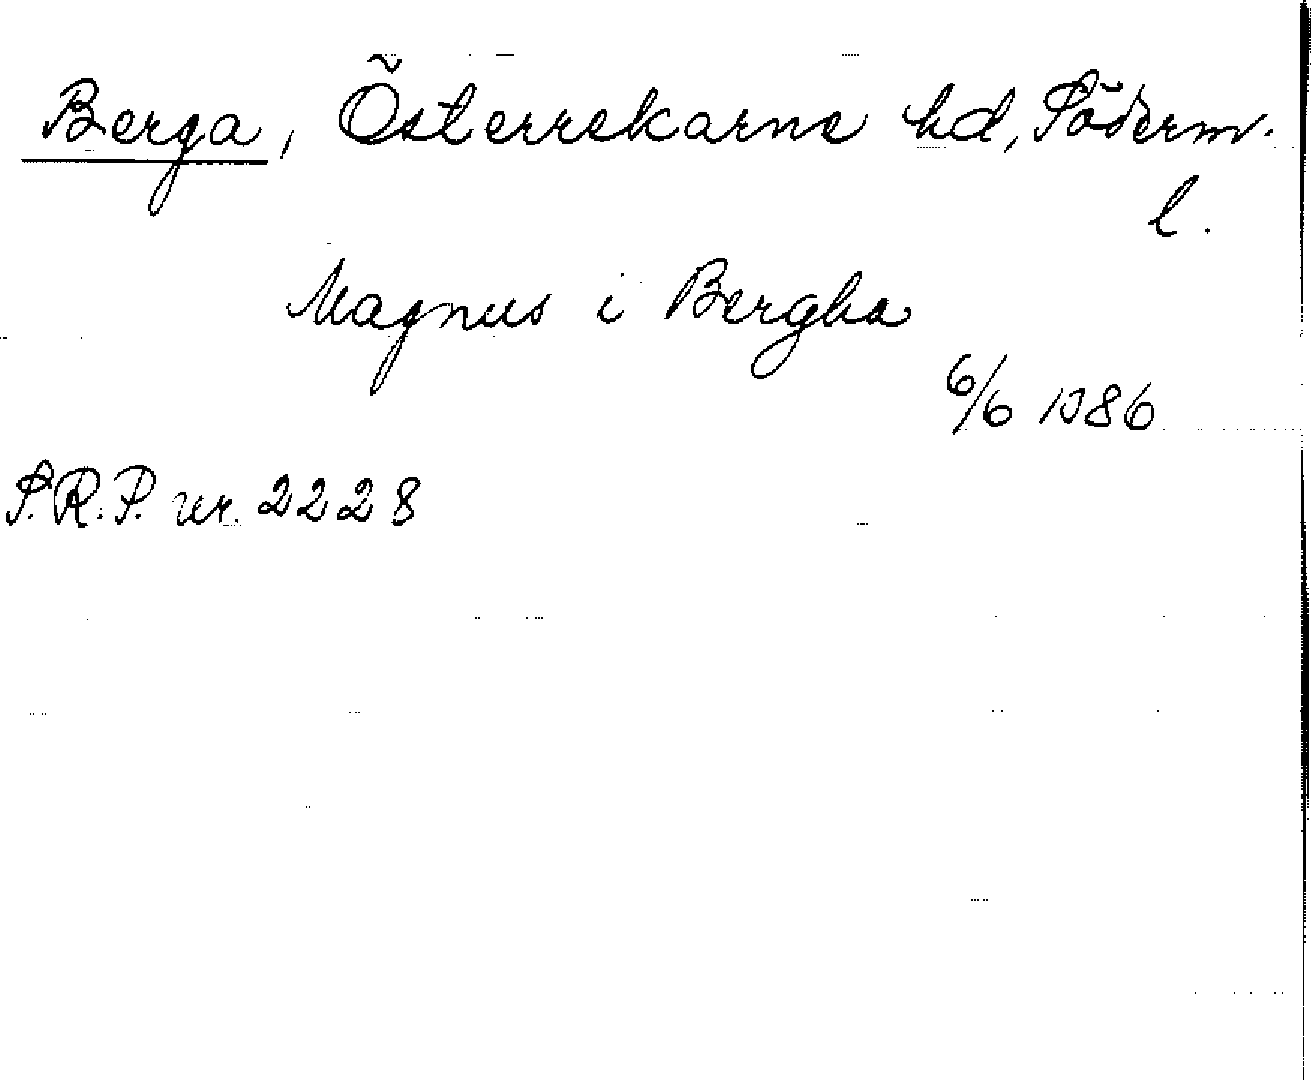 Berga, Österrekarne hd, Söderm.
l.
Magnus i Bergha
6/6 1386
S.R.P. nr. 2228